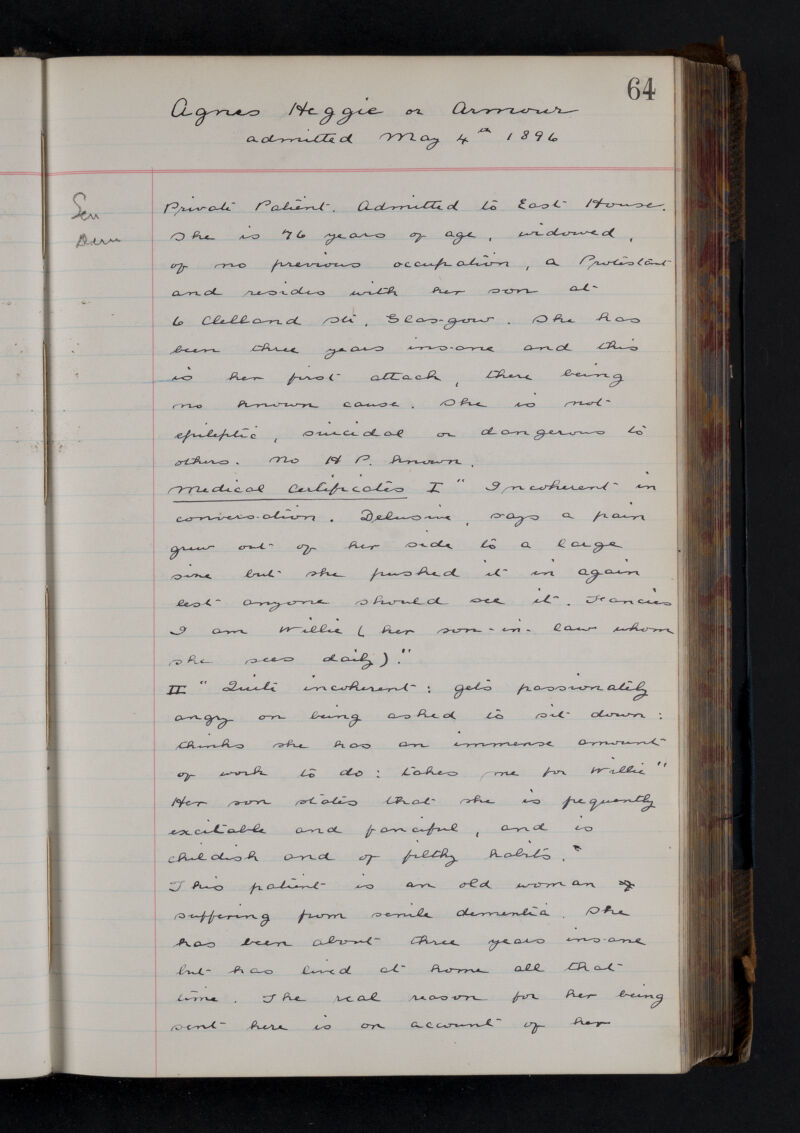 64
Agnes Heggie or Armour
admitted May 4th 1896
Sen
Dem
Private Patient. Admitted to East House.
She is 76 years of age, widowed,
of no previous occupation, a Protestant
and resides with her son at
6 Clelland St, Glasgow. She has
been three years insane and this
is her first attack, there being
no known cause. She is not
epileptic, suicidal or dangerous to
others. No H P. known.
Medical Certificates I " Incoherent in
conversation. Delusive, says a pain
grew out of her side to a large
size but she pushed it in again
lest anyone should see it. Fancies
I am Willie (her son-in-law whom
she sees daily)."
II " Quite incoherent: gets passionately
angry on being asked to sit down:
thinks she has an immense amount
of work to do: takes me for Willie"
Her son states that she is frequently
excitable and fanciful, and is
childish and of filthy habits."
This patient is an old woman
suffering from senile dementia. She
has been about three years insane
but has lived at home all that
time. The real reason for her being
sent here is on account of her